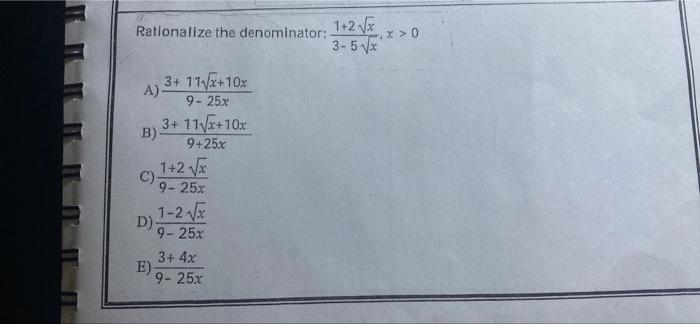 Rationalize the denominator: (1+2√x)/(3-5√x), x > 0
A) (3+ 11√x+10x)/(9- 25x)
B) (3+ 11√x+10x)/(9+25x)
C) (1+2√x)/(9- 25x)
D) (1-2√x)/(9- 25x)
E) (3+ 4x)/(9- 25x)